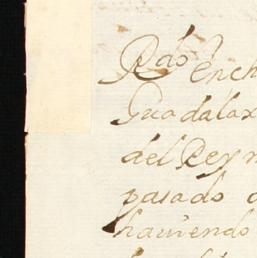 Rdo ench
Guadalax
del Reyn
pasado
haviendo